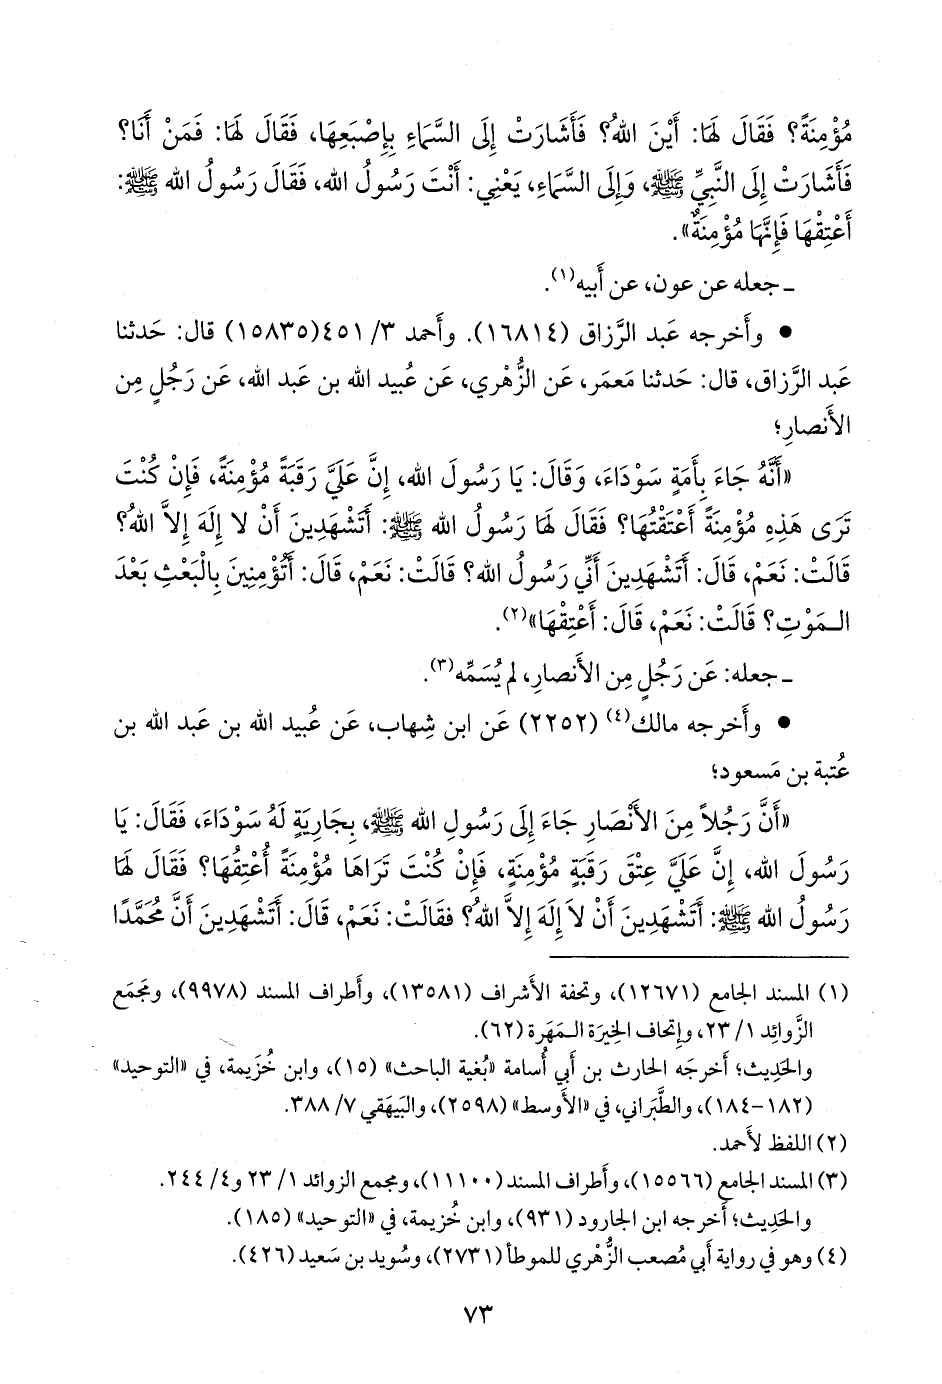 مُؤْمِنَةً؟ فَقَالَ لَهَا: أَيْنَ اللهُ؟ فَأَشَارَتْ إِلَى السَّمَاءِ بِإِصْبَعِهَا، فَقَالَ لَهَا: فَمَنْ أَنَا؟
فَأَشَارَتْ إِلَى النَّبِيِّ ﷺ، وَإِلَى السَّمَاءِ، يَعْنِي: أَنْتَ رَسُولُ الله، فَقَالَ رَسُولُ الله ﷺ:
أَعْتِقْهَا فَإِنَّهَا مُؤْمِنَةٌ».
ـ جعله عن عون، عن أَبيه(١).
• وأَخرجه عَبد الرَّزاق (١٦٨١٤). وأَحمد ٣/ ٤٥١(١٥٨٣٥) قال: حَدثنا
عَبد الرَّزاق، قال: حَدثنا مَعمَر، عَن الزُّهْري، عَن عُبيد الله بن عَبد الله، عَن رَجُلٍ مِن
الأَنصارِ؛
«أَنَّهُ جَاءَ بِأَمَةٍ سَوْدَاءَ، وَقَالَ: يَا رَسُولَ الله، إِنَّ عَلَيَّ رَقَبَةً مُؤْمِنَةً، فَإِنْ كُنْتَ
تَرَى هَذِهِ مُؤْمِنَةً أَعْتَقْتُهَا؟ فَقَالَ لَهَا رَسُولُ الله ﷺ: أَتَشْهَدِينَ أَنْ لا إِلَهَ إِلاَّ اللهُ؟
قَالَتْ: نَعَمْ، قَالَ: أَتَشْهَدِينَ أَنِّي رَسُولُ الله؟ قَالَتْ: نَعَمْ، قَالَ: أَتُؤْمِنِينَ بِالْبَعْثِ بَعْدَ
الـمَوْتِ؟ قَالَتْ: نَعَمْ، قَالَ: أَعْتِقْهَا»(٢).
ـ جعله: عَن رَجُلٍ مِن الأَنصارِ، لم يُسَمِّه(٣).
• وأَخرجه مالك(٤) (٢٢٥٢) عَن ابن شِهاب، عَن عُبيد الله بن عَبد الله بن
عُتبة بن مَسعود؛
«أَنَّ رَجُلاً مِنَ الأَنْصَارِ جَاءَ إِلَى رَسُولِ الله ﷺ، بِجَارِيَةٍ لَهُ سَوْدَاءَ، فَقَالَ: يَا
رَسُولَ الله، إِنَّ عَلَيَّ عِتْقَ رَقَبَةٍ مُؤْمِنَةٍ، فَإِنْ كُنْتَ تَرَاهَا مُؤْمِنَةً أُعْتِقُهَا؟ فَقَالَ لَهَا
رَسُولُ الله ﷺ: أَتَشْهَدِينَ أَنْ لاَ إِلَهَ إِلاَّ اللهُ؟ فقَالَتْ: نَعَمْ، قَالَ: أَتَشْهَدِينَ أَنَّ مُحَمَّدًا
(١) المسند الجامع (١٢٦٧١)، وتحفة الأَشراف (١٣٥٨١)، وأَطراف المسند (٩٩٧٨)، ومجَمَع
الزَّوائِد ١/ ٢٣، وإِتحاف الخِيرَة الـمَهَرة (٦٢).
والحَدِيث؛ أَخرجَه الحارث بن أَبي أُسامة «بُغية الباحث» (١٥)، وابن خُزَيمة، في «التوحيد»
(١٨٢-١٨٤)، والطَّبَراني، في «الأَوسط» (٢٥٩٨)، والبَيهَقي ٧/ ٣٨٨.
(٢) اللفظ لأَحمد.
(٣) المسند الجامع (١٥٥٦٦)، وأَطراف المسند (١١١٠٠)، ومجمع الزوائد ١/ ٢٣ و٤/ ٢٤٤.
والحَدِيث؛ أَخرجه ابن الجارود (٩٣١)، وابن خُزيمة، في «التوحيد» (١٨٥).
(٤) وهو في رواية أَبي مُصعب الزُّهْري للموطأ (٢٧٣١)، وسُويد بن سَعيد (٤٢٦).
٧٣